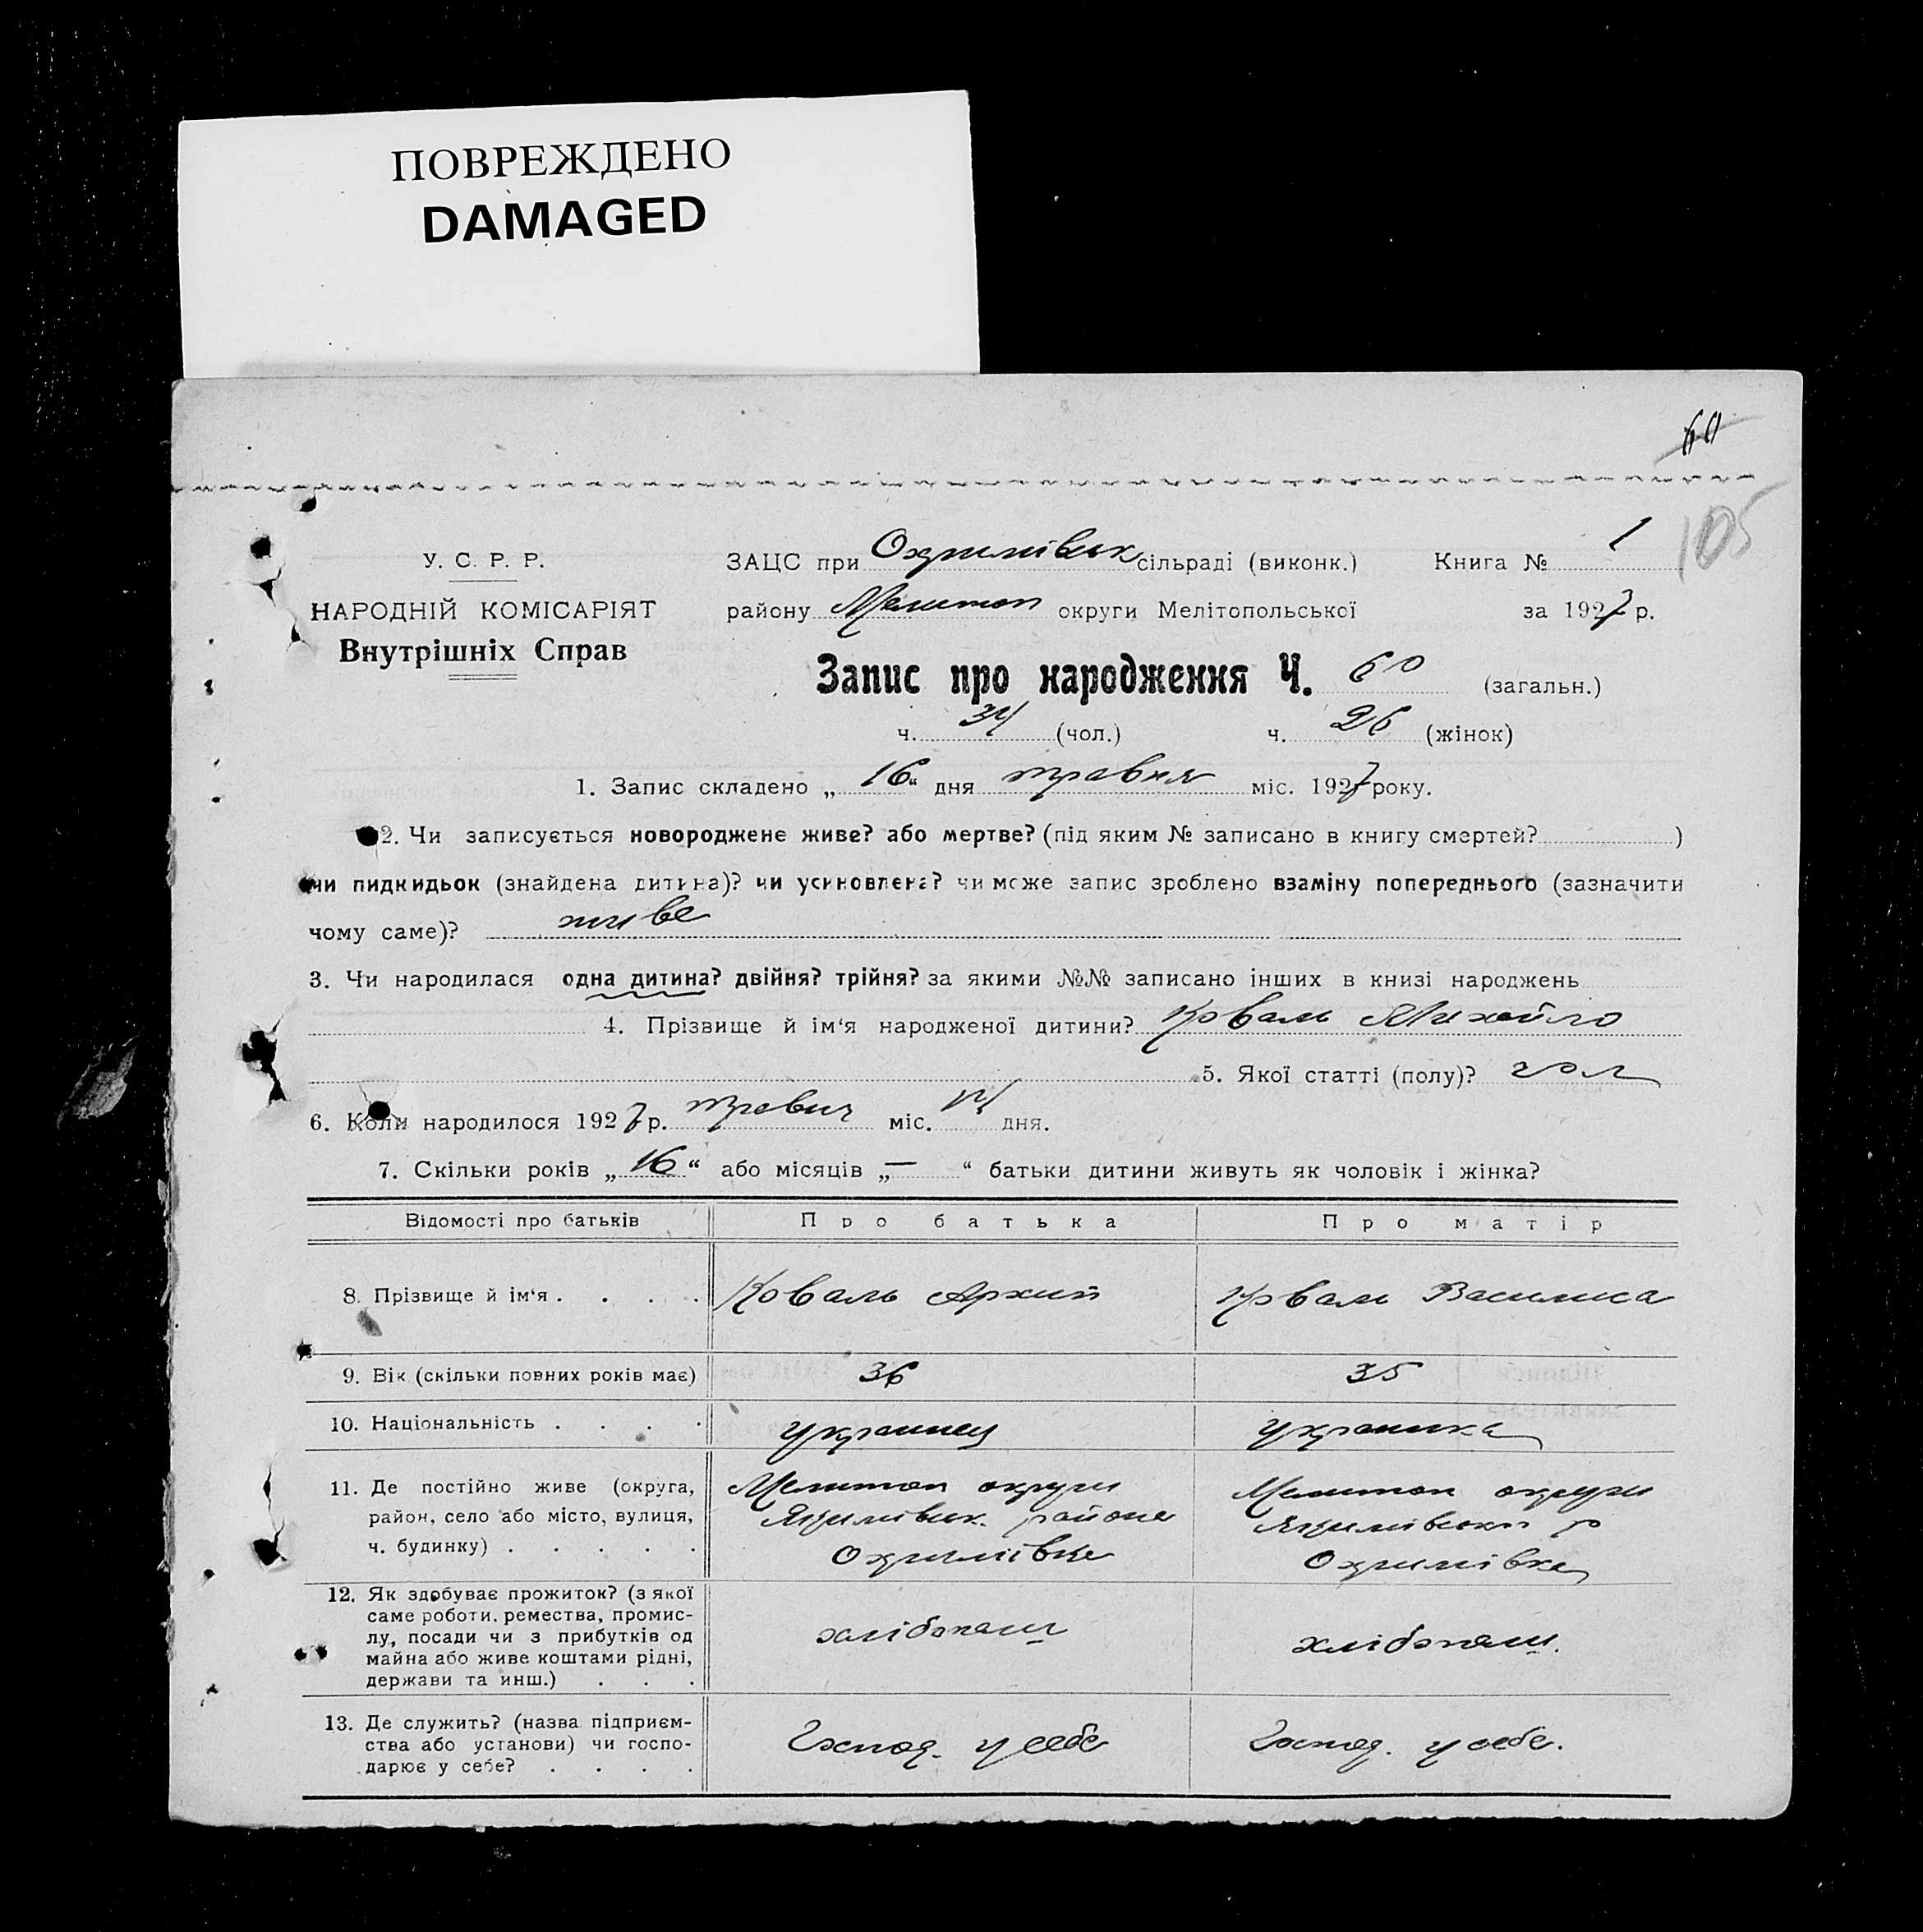 ПОВРЕЖДЕНО
DAMAGED
60
105
У. С. Р. Р.
НАРОДНІЙ КОМІСАРІЯТ
Внутрішніх Справ
ЗАЦС при Охримівск сільраді (виконк.) Книга № 1
району Мелитоп округи Мелітопольської за 1927 р.
Запис про народження Ч. 60 (загальн.)
ч. 34 (чол.) ч. 26 (жінок)
1. Запис складено „ 16 “ дня травня міс. 1927 року.
2. Чи записується новороджене живе? або мертве? (під яким № записано в книгу смертей? )
чи пидкидьок (знайдена дитина)? чи усиновлена? чи може запис зроблено взаміну попереднього (зазначити
чому саме)? живе
3. Чи народилася одна дитина? двійня? трійня? за якими №№ записано інших в книзі народжень
4. Прізвище й ім‘я народженої дитини? Коваль Михайло
5. Якої статті (полу)? чол
6. Коли народилося 1927 р. травня міс. 14 дня.
7. Скільки років „ 16 “ або місяців „ — “ батьки дитини живуть як чоловік і жінка?
Відомості про батьків Про батька Про матір
8. Прізвище й ім‘я . . . . Коваль Архип Коваль Василиса
9. Вік (скільки повних років має) 36 35
10. Національність . . . . украинец украинка
11. Де постійно живе (округа, Мелитоп округи Мелитоп округи
район, село або місто, вулиця, Якимівск. района Якимівского р
ч. будинку) . . . . . Охримівка Охримівка
12. Як здобуває прожиток? (з якої
саме роботи, ремества, промис-
лу, посади чи з прибутків од хлібопаш хлібопаш.
майна або живе коштами рідні,
держави та инш.) . . .
13. Де служить? (назва підприєм-
ства або установи) чи госпо- Господ. у себе Господ. у себе.
дарює у себе? . . . .